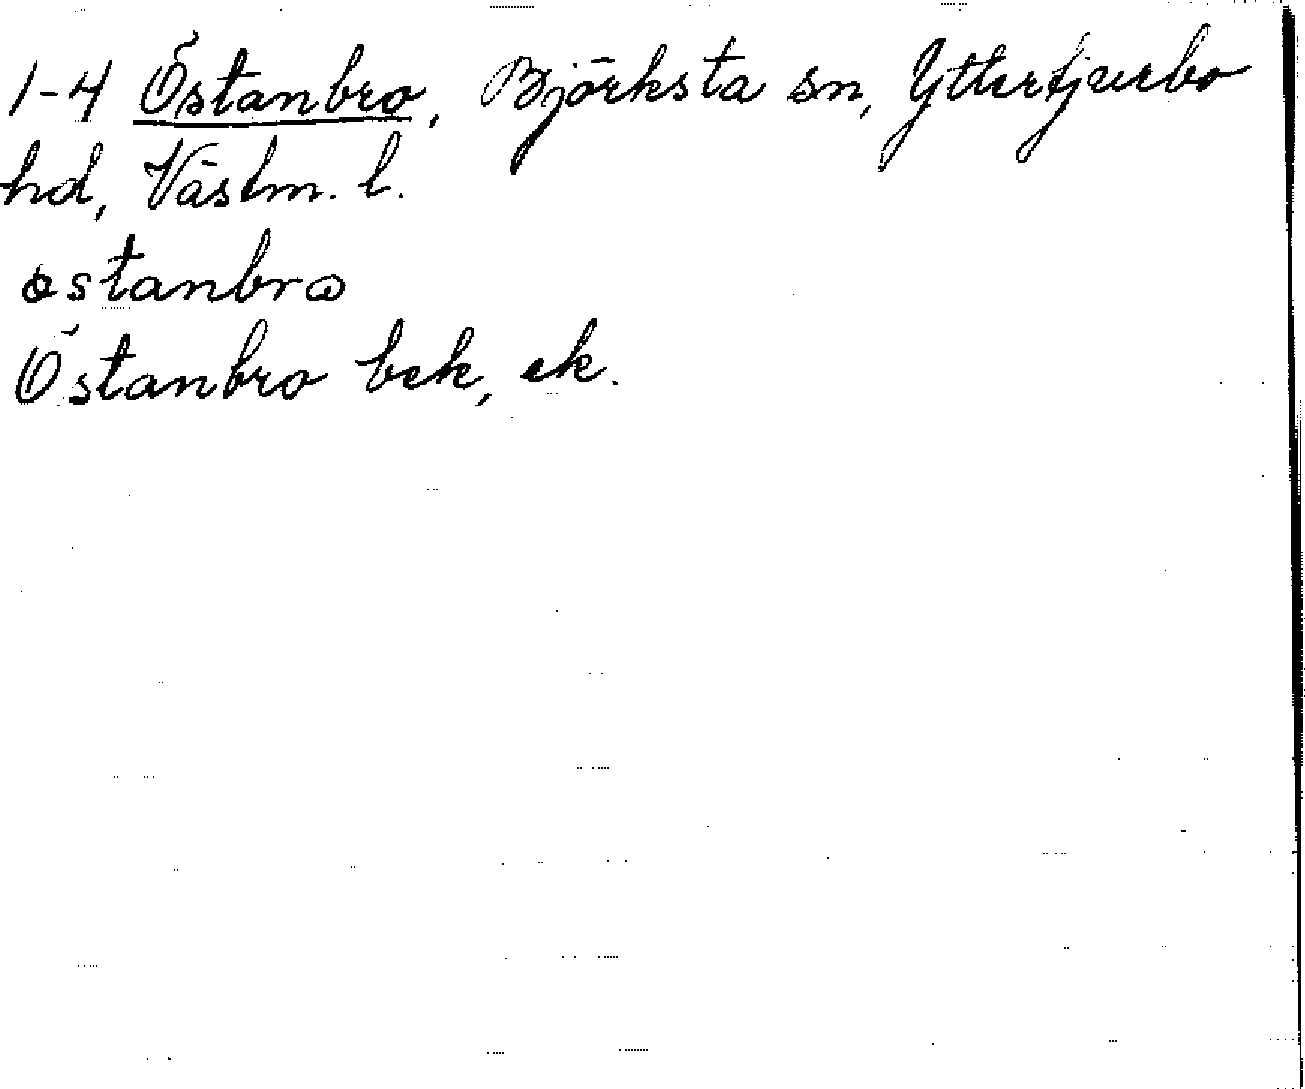 1-4 Östanbro, Björksta sn, Yttertjurbo
hd, Västm. l.
östanbrω
Östanbro bek, ek.